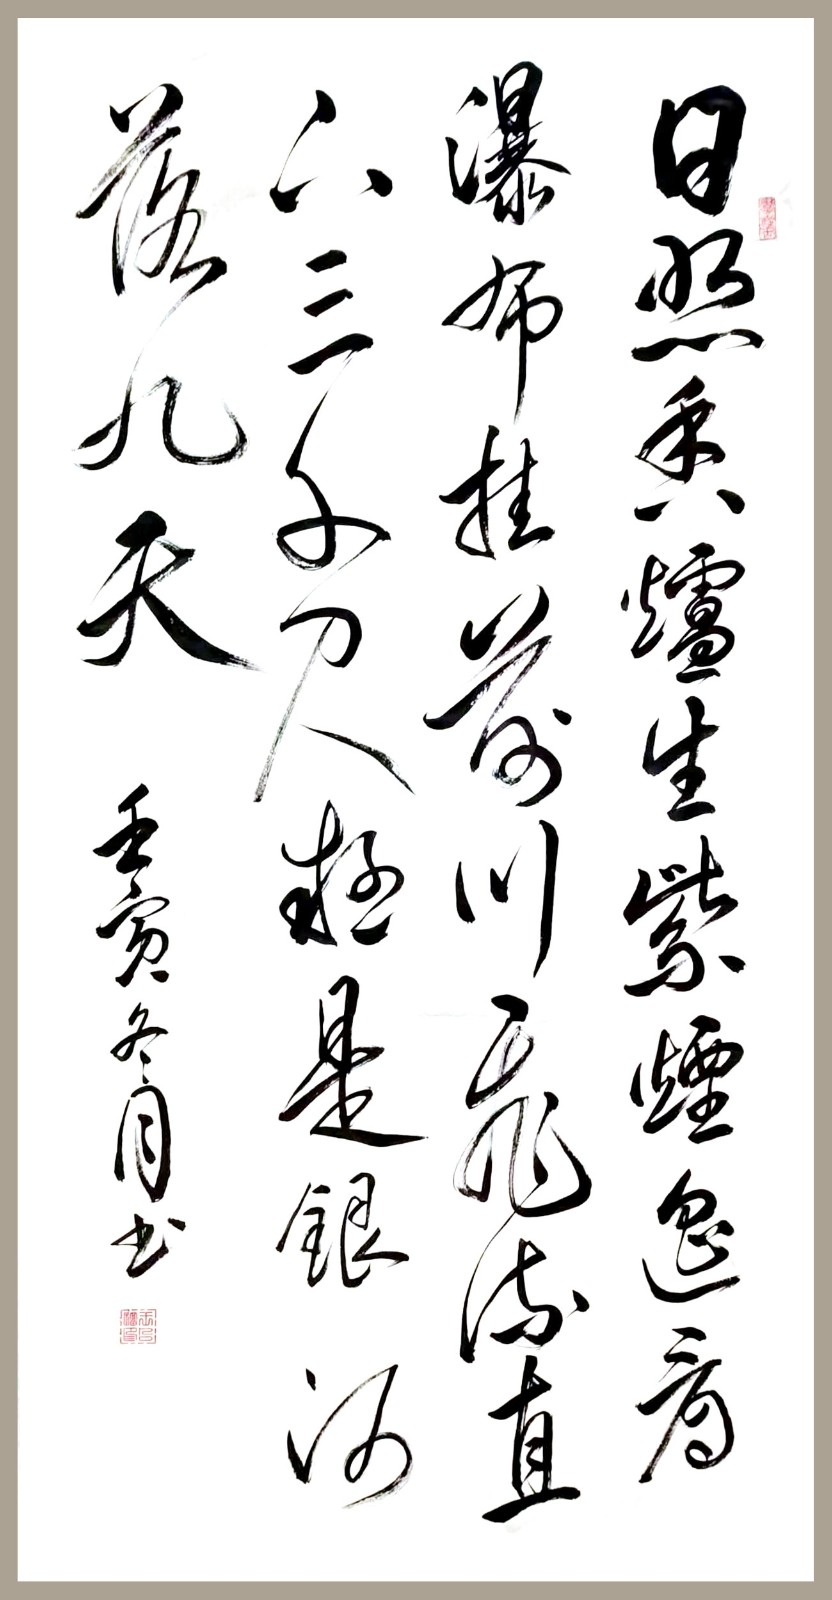 日照香爐生紫煙遙看
瀑布挂前川飛流直
下三千尺疑是銀河
落九天
壬寅冬月书